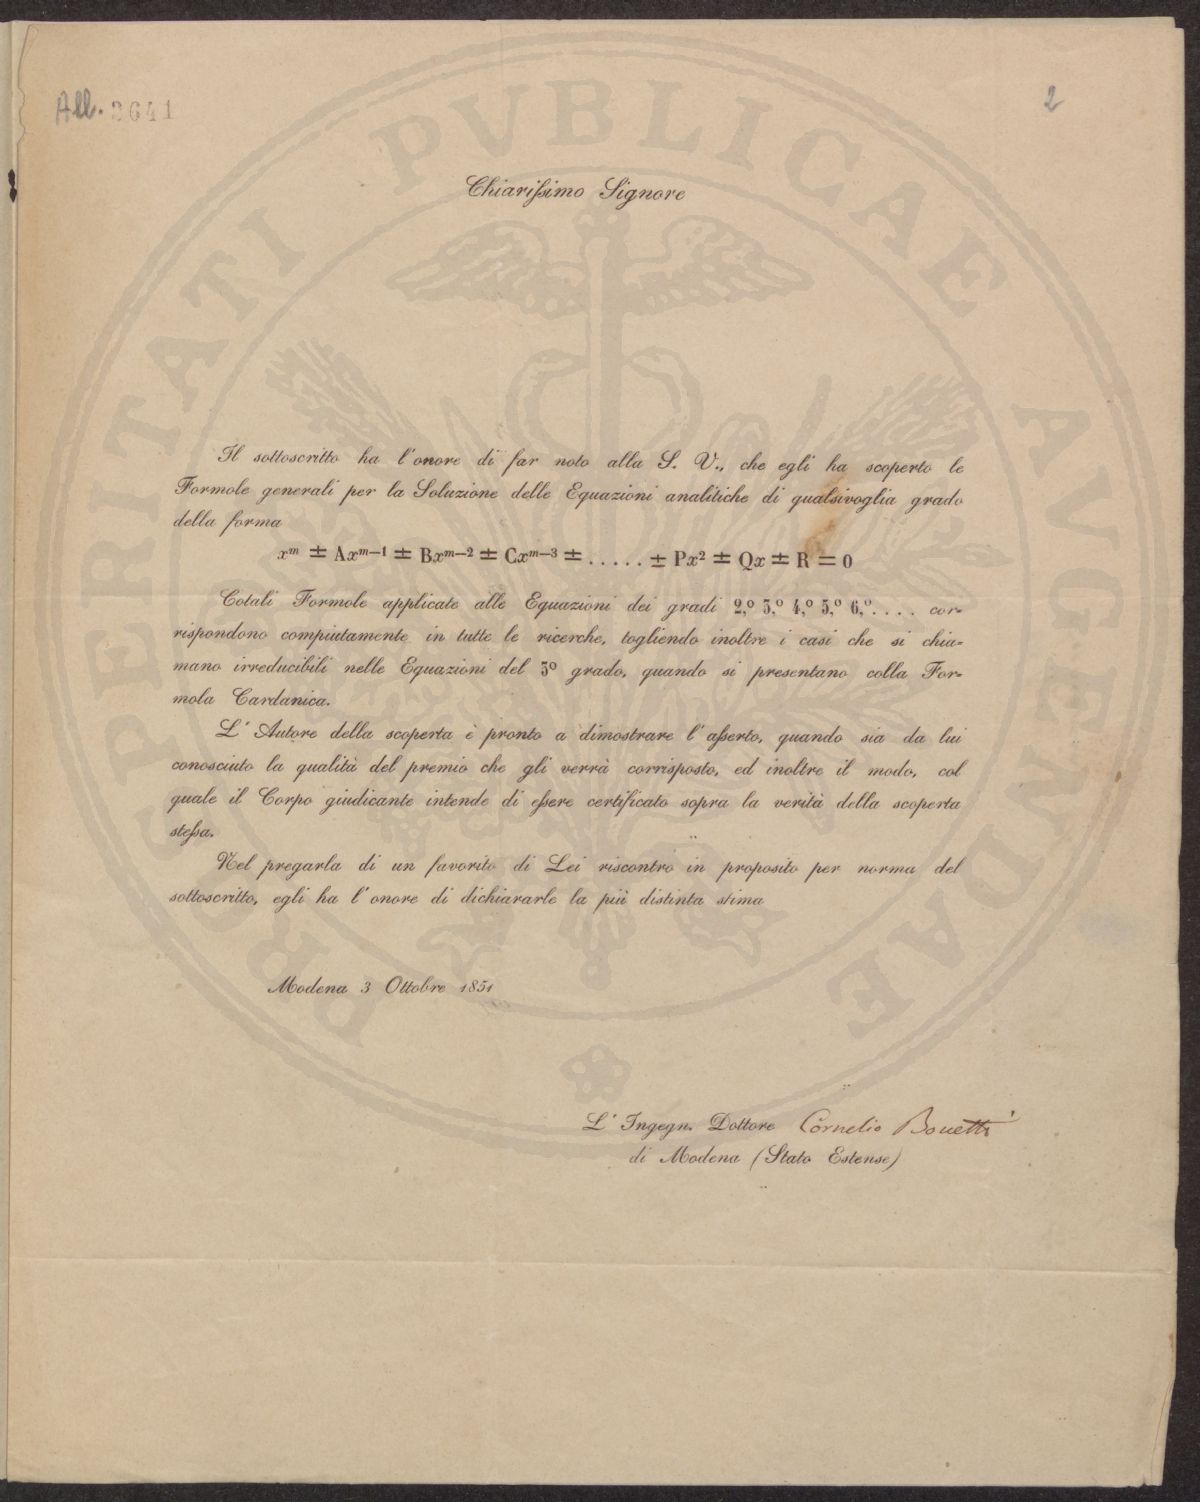 All. 3641
2
PROSPERITATI PVBLICAE AVGENDAE
Chiarissimo Signore
Il sottoscritto ha l'onore di far noto alla S. V., che egli ha scoperto le
Formole generali per la Soluzione delle Equazioni analitiche di qualsivoglia grado
della forma
xᵐ ± Axᵐ⁻¹ ± Bxᵐ⁻² ± Cxᵐ⁻³ ± ..... ± Px² ± Qx ± R = 0
Cotali Formole applicate alle Equazioni dei gradi 2,º 3,º 4,º 5,º 6,º.... cor-
rispondono compiutamente in tutte le ricerche, togliendo inoltre i casi che si chia-
mano irreducibili nelle Equazioni del 3º grado, quando si presentano colla For-
mola Cardanica.
L' Autore della scoperta è pronto a dimostrare l' asserto, quando sia da lui
conosciuto la qualità del premio che gli verrà corrisposto, ed inoltre il modo, col
quale il Corpo giudicante intende di essere certificato sopra la verità della scoperta
stessa.
Nel pregarla di un favorito di Lei riscontro in proposito per norma del
sottoscritto, egli ha l' onore di dichiararle la più distinta stima
Modena 3 Ottobre 1851
L' Ingegn. Dottore Cornelio Bonetti
di Modena (Stato Estense)